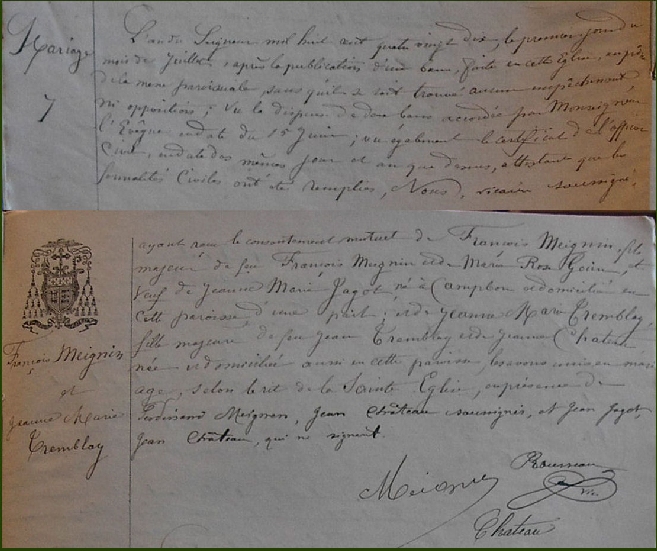 Mariage
7
L'an du Seigneur mil huit cent quatre vingt dix, le premier jour du
mois de Juillet, après la publication d'un ban, faite en cette Eglise,
de la messe paroissiale, sans qu'il se soit trouvé aucun empêchement
ni opposition; Vu la dispense de deux bans accordée par Monseigneur
l'Evêque, en date du 15 Juin; vu également le certificat de l'officier
Civil, en date des mêmes jour et an que dessus, attestant que les
formalités Civiles ont été remplies, Nous, vicaire soussigné,
ayant reçu le consentement mutuel de François Meignen, fils
majeur de feu François Meignen et de Marie Rose, et
veuf de Jeanne Marie Jagot, né à Campbon et domicilié en
cette paroisse d'une part; et de Jeanne Marie Tremblay,
fille majeure de feu Jean Tremblay et de Jeanne Château
née et domiciliée aussi en cette paroisse, les avons unis en mari
age, selon le rit de la Sainte Eglise, en présence de
Ferdinand Meignen, Jean Château soussignés, et Jean Jagot,
Jean Château, qui ne signent.
François Meignen
et
Jeanne Marie
Tremblay
Meignen
Rousseau
vic.
Chateau